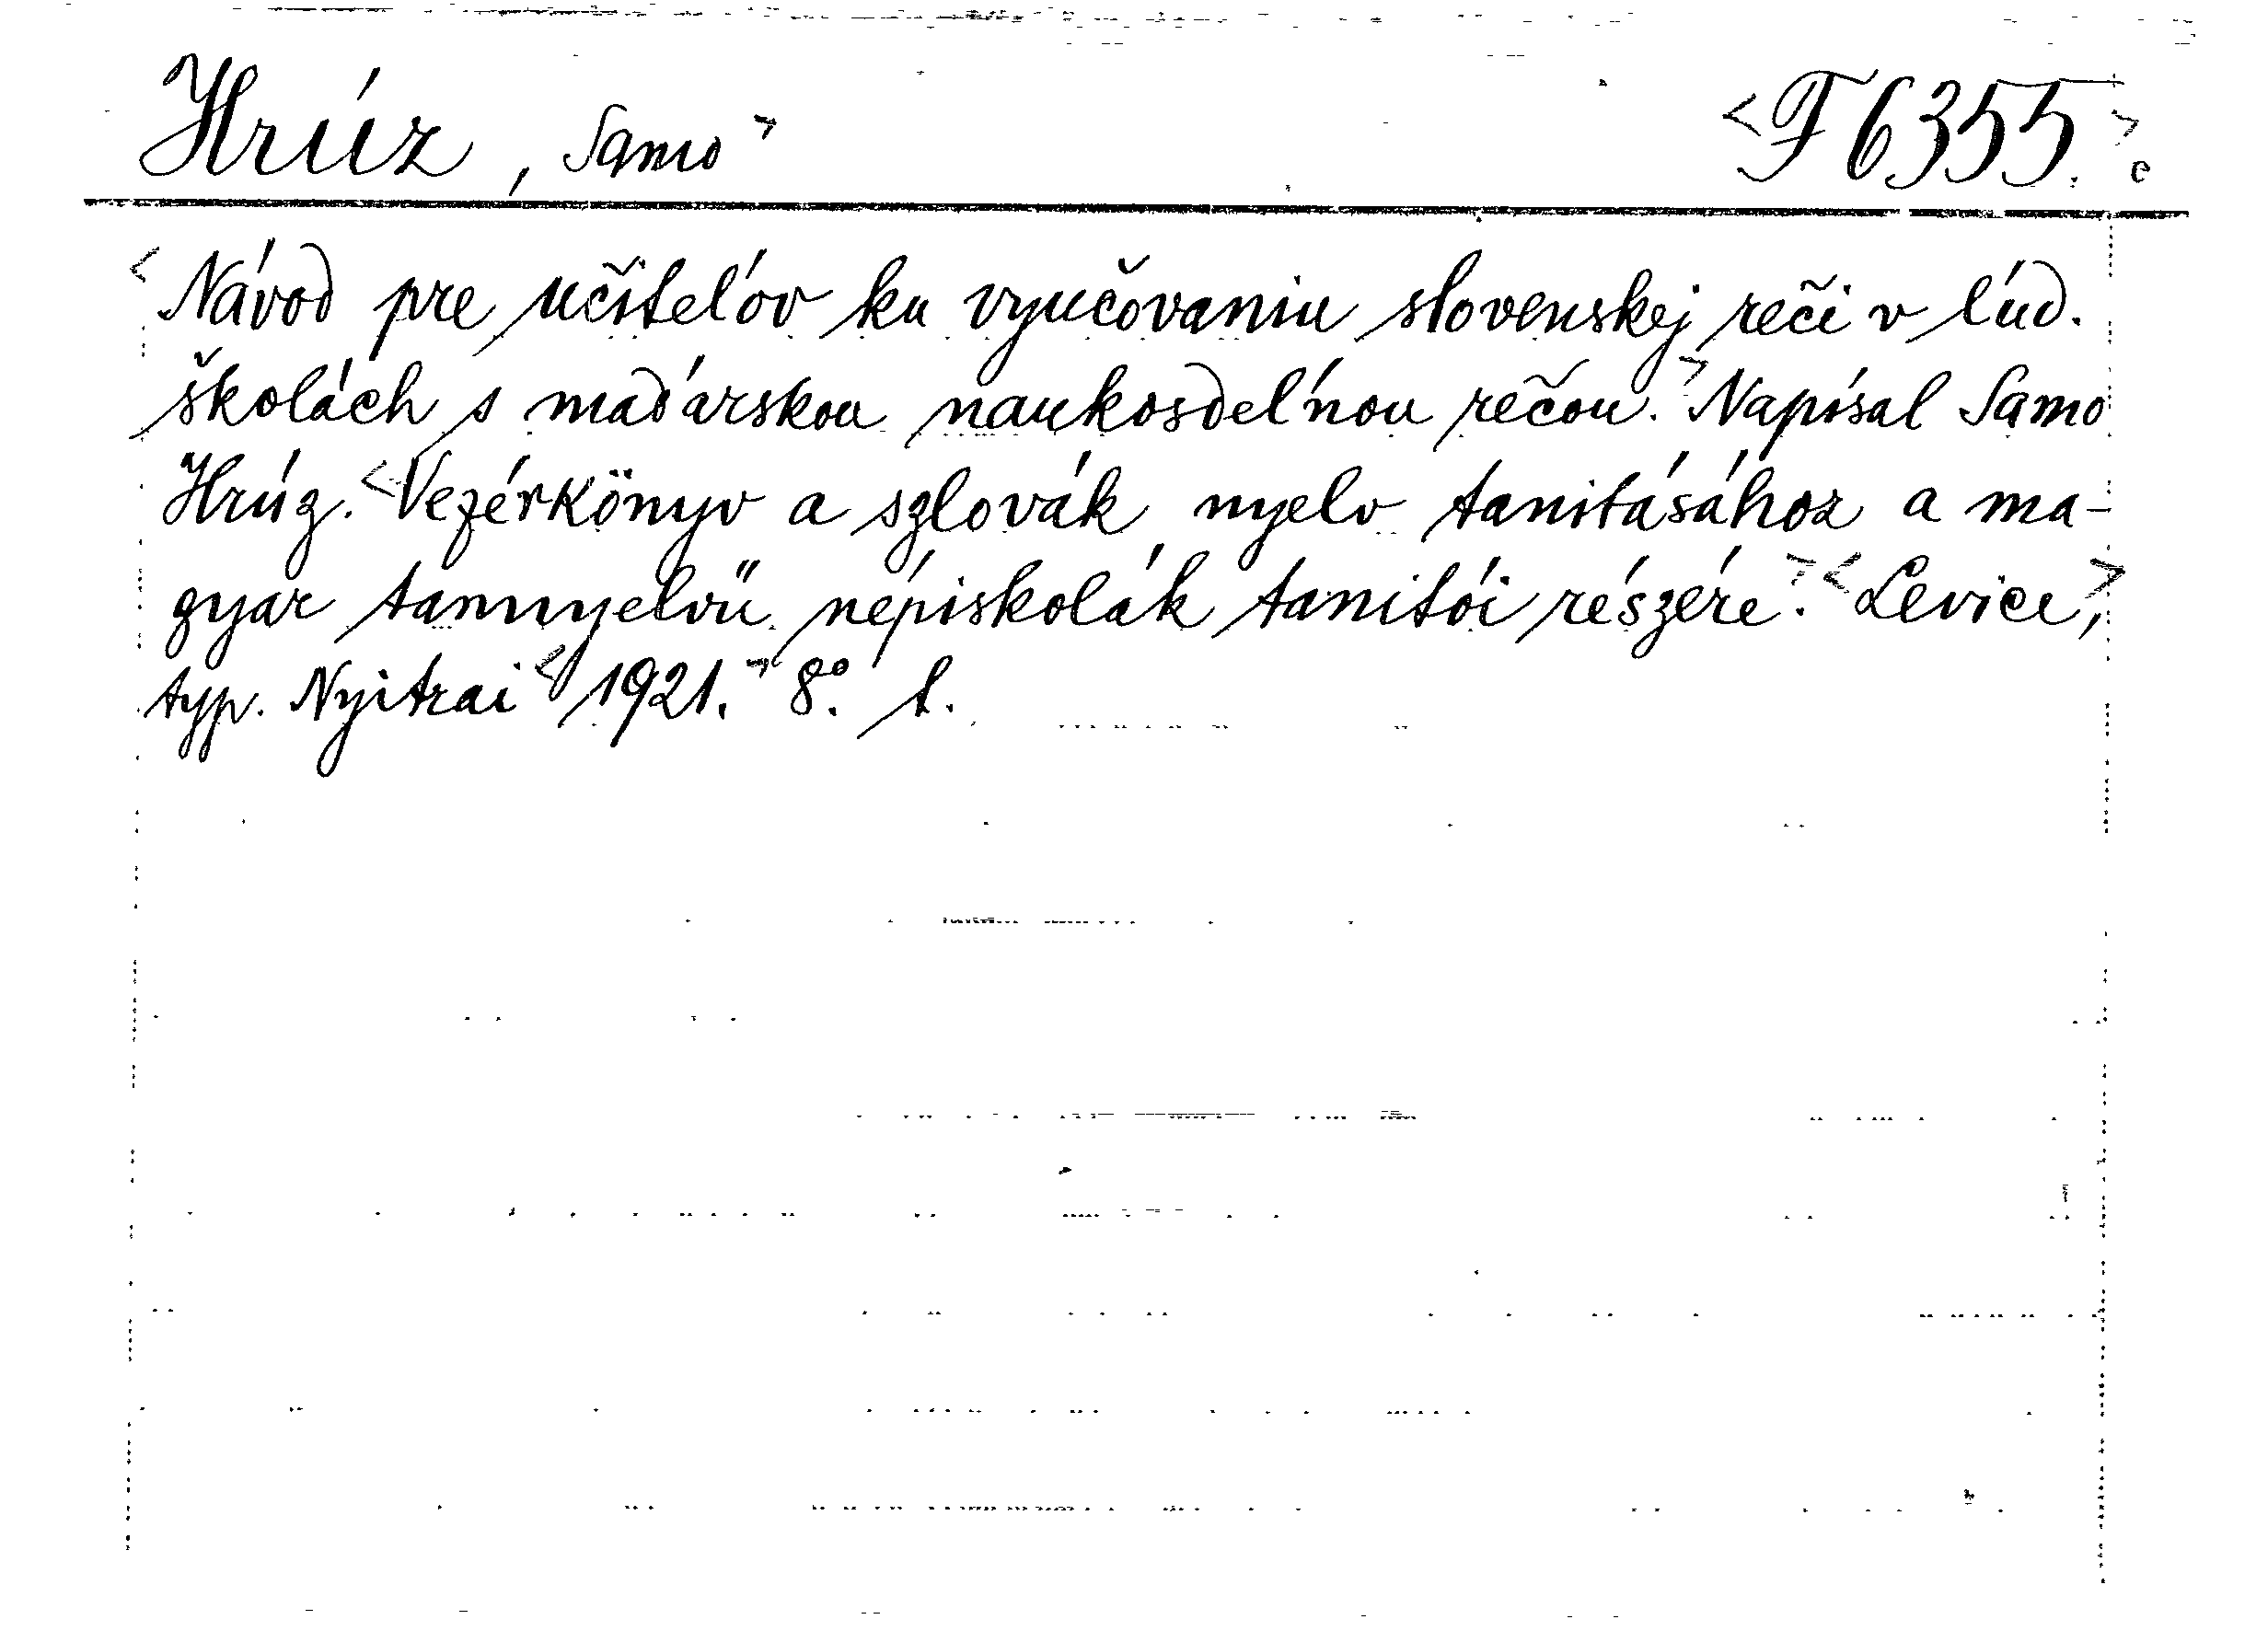 Hrúz, Samo>
<F 6355.>
<Návod pre učiteľov ku vyučovaniu slovenskej reči v ľud.
školách s maďarskou naukosdeľnou rečou.> Napísal Samo
Hrúz. <Vezérkönyv a szlovák nyelv tanitásához a ma-
gyar tannyelvű népiskolák tanitói részére.> <Levice,>
typ. Nyitrai <1921.> 8°. l.